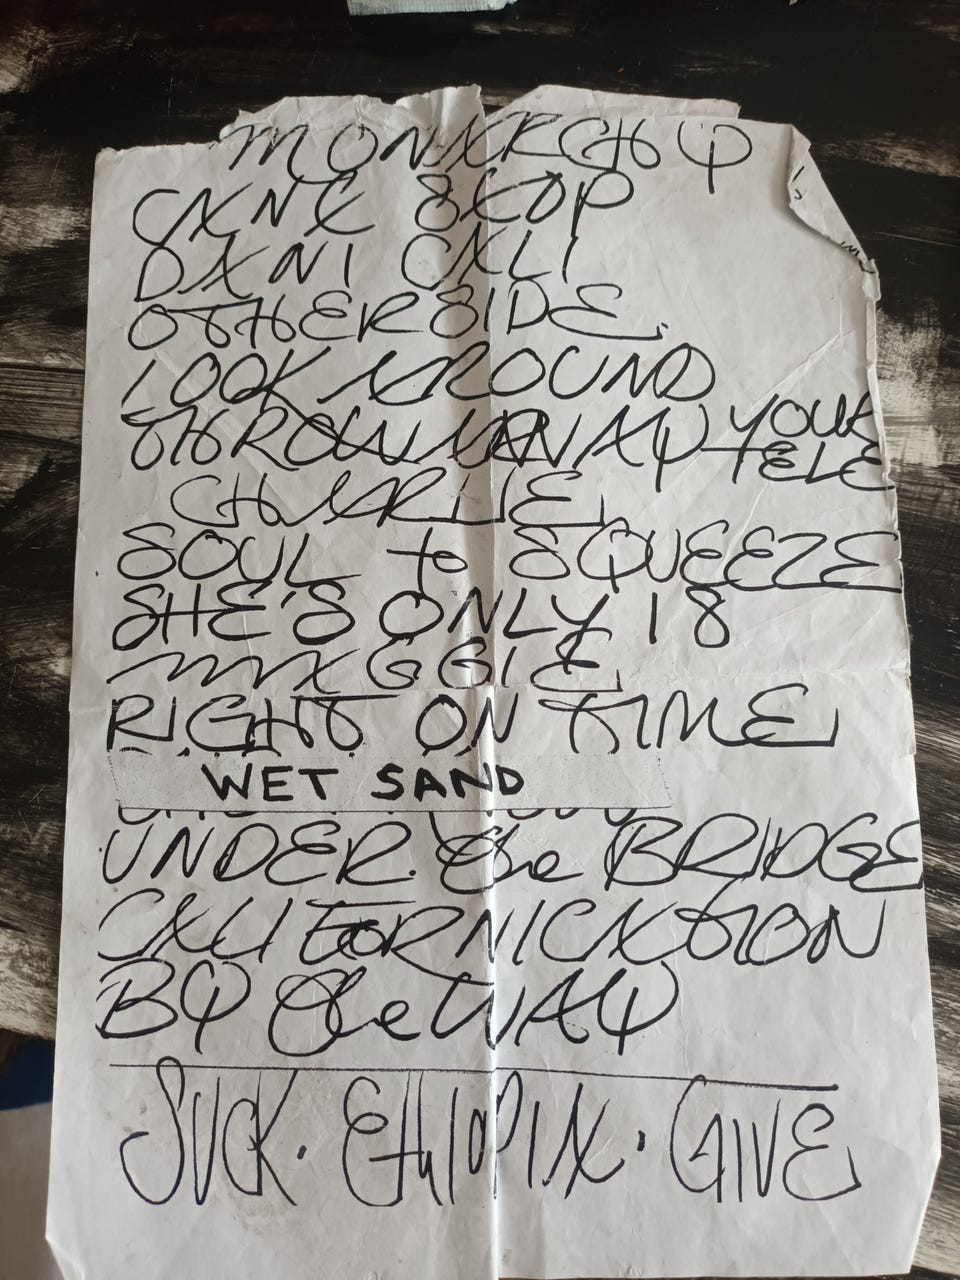 MONARCHY
CANT STOP
DANI CALI
OTHERSIDE
LOOK AROUND
THROW AWAY YOUR
TELE
CHARLIE
SOUL to SQUEEZE
SHE'S ONLY 18
MAGGIE
RIGHT ON TIME
WET SAND
UNDER the BRIDGE
CALIFORNICATION
BY the WAY
SUCK · ETHIOPIA · GIVE